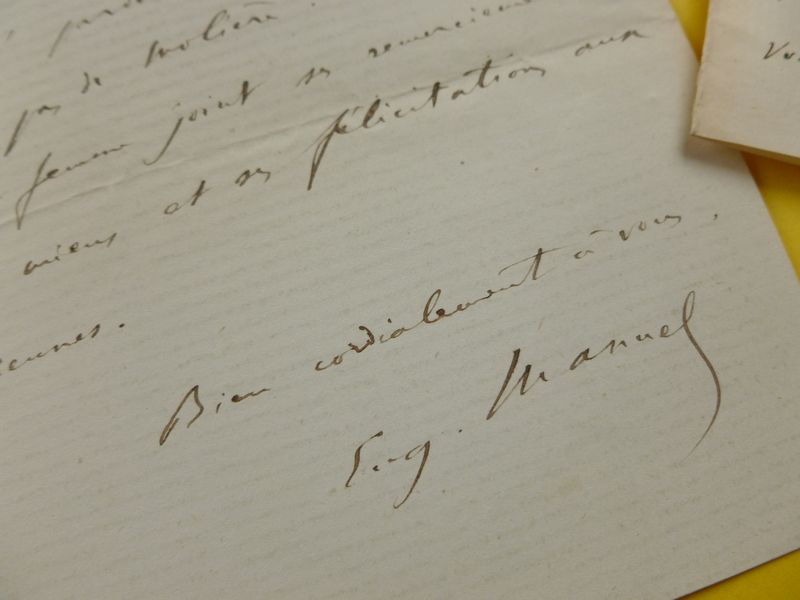 pas de Molière.
femme joint ses remerciements
miens et ses félicitations aux
miennes.
Bien cordialement à vous.
Eug. Manuel